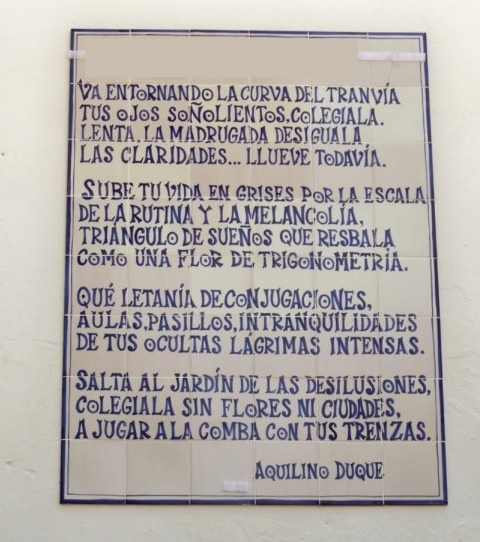 VA ENTORNANDO LA CURVA DEL TRANVÍA
TUS OJOS SOÑOLIENTOS. COLEGIALA.
LENTA, LA MADRUGADA DESIGUALA
LAS CLARIDADES... LLUEVE TODAVÍA.
SUBE TU VIDA EN GRISES POR LA ESCALA
DE LA RUTINA Y LA MELANCOLÍA,
TRIÁNGULO DE SUEÑOS QUE RESBALA
COMO UNA FLOR DE TRIGONOMETRÍA.
QUÉ LETANÍA DE CONJUGACIONES,
AULAS, PASILLOS, INTRANQUILIDADES
DE TUS OCULTAS LÁGRIMAS INTENSAS.
SALTA AL JARDÍN DE LAS DESILUSIONES,
COLEGIALA SIN FLORES NI CIUDADES,
A JUGAR A LA COMBA CON TUS TRENZAS.
AQUILINO DUQUE